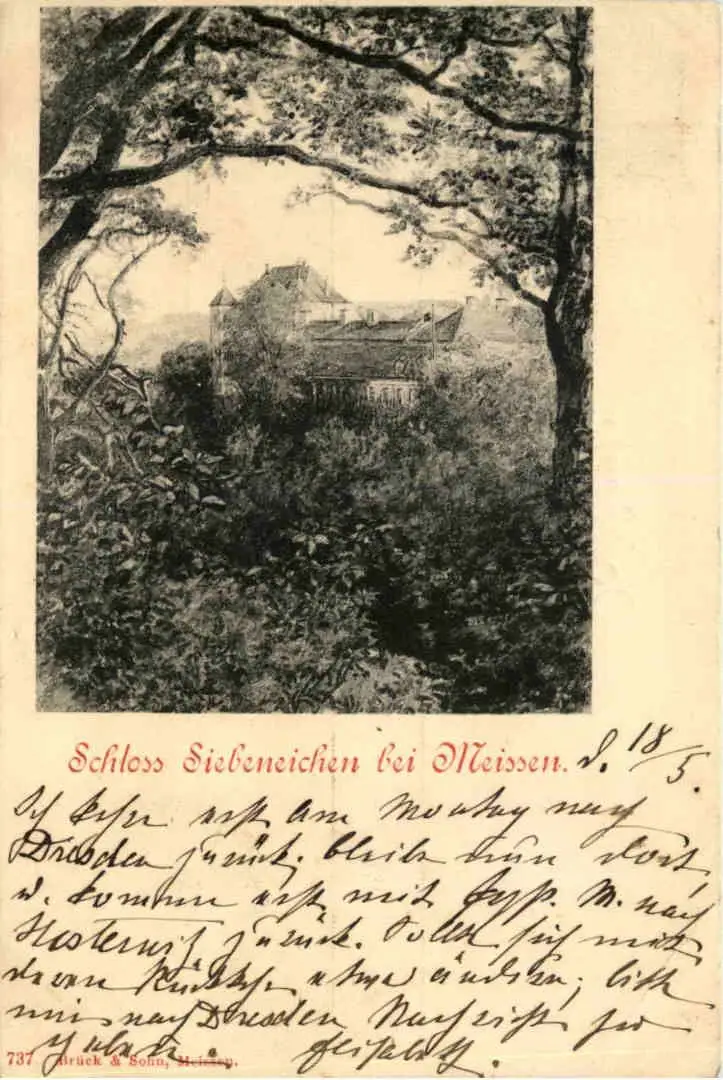 Schloss Siebeneichen bei Meissen. d. 18/5.
Ich kehre erst am Montag nach
Dresden zurück; bleibe nun dort,
u. komme erst mit M. nach
Hosterwitz zurück. Sollte sich mit
deren Rückkehr etwas ändern, bitte
mir nach Dresden Nachricht zu
geben. Elisabeth.
737 Brück & Sohn, Meissen.